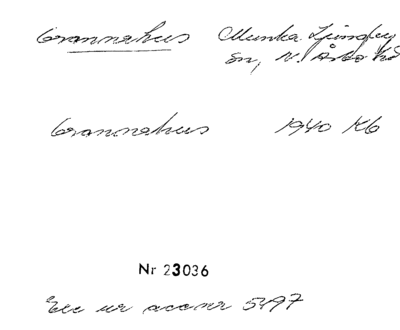 Grannahus Munka Ljungby
sn, N. Åsbo hd
Grannahus 1940 KG
Nr 23036
Exc ur accnr 5497